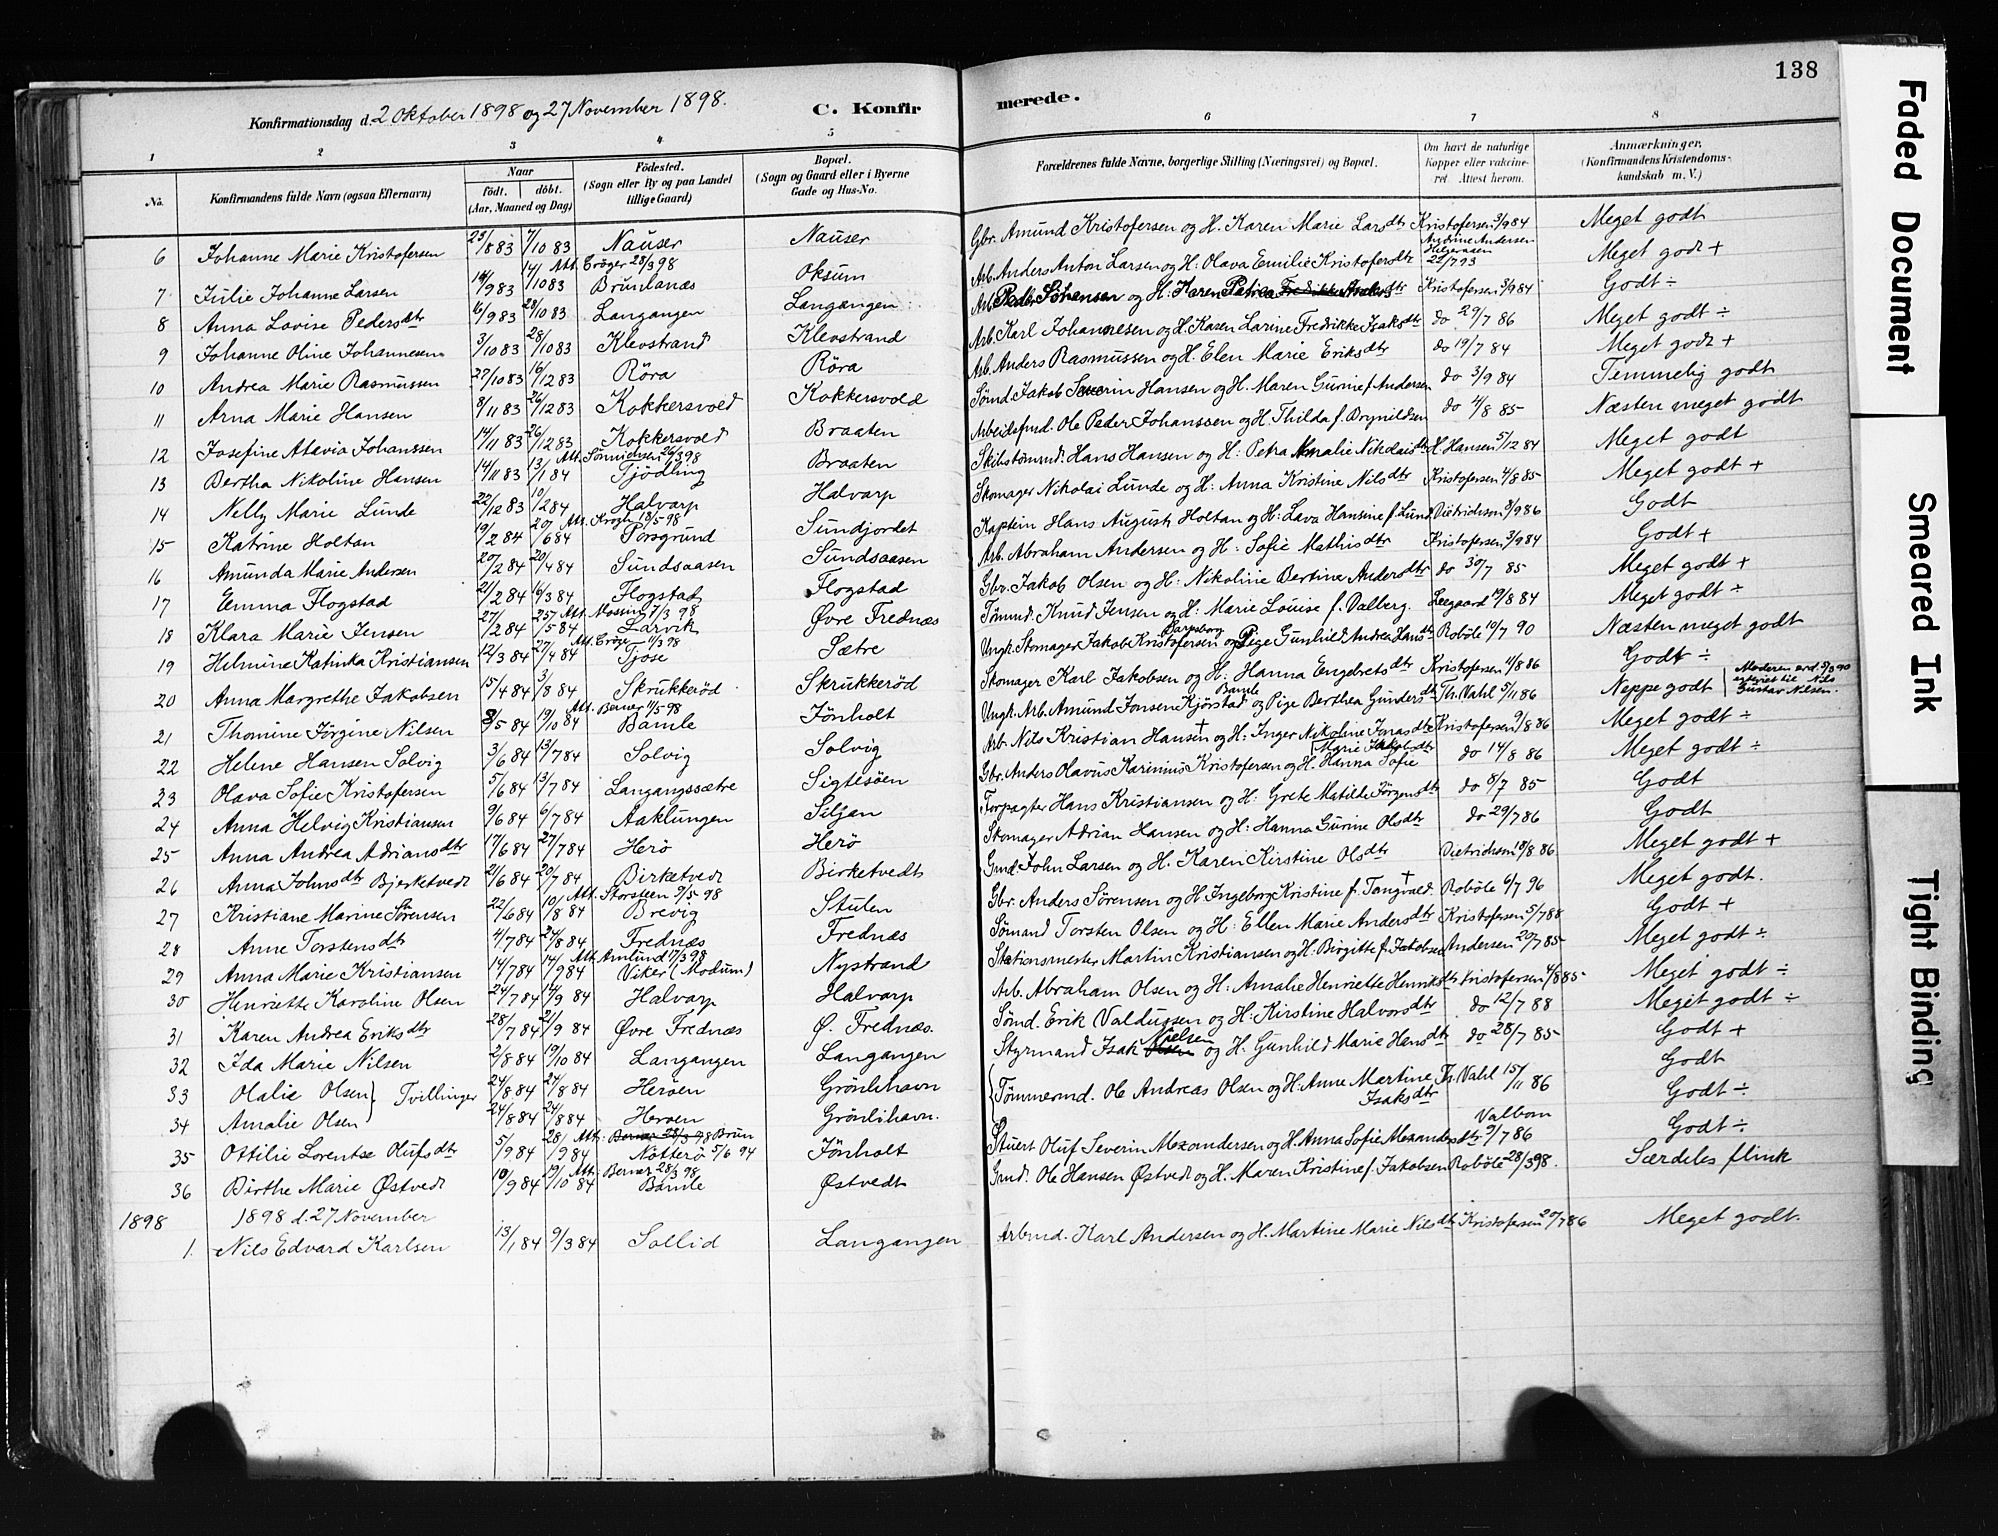 138
Konfirmationsdag d. 2 Oktober 1898 og 27 November 1898.
C. Konfirmerede.
1 2 3 4 5 6 7 8
No. Konfirmandens fulde Navn (ogsaa Efternavn) Naar födt. döbt. (Aar, Maaned og Dag) Födested. (Sogn eller By og paa Landet tillige Gaard) Bopæl. (Sogn og Gaard eller i Byerne Gade og Hus-No. Forældrenes fulde Navne, borgerlige Stilling (Næringsvei) og Bopæl. Om havt de naturlige Kopper eller vakcineret. Attest herom. Anmærkninger. (Konfirmandens Kristendomskundskab m. V.)
6 Johanne Marie Kristofersen 23/8 83 7/10 83 Nauser Nauser Gbr. Amund Kristofersen og H. Karen Marie Larsdtr Kristofersen 3/9 84 Meget godt
Att. Cröger 28/3 98
7 Julie Johanne Larsen 14/9 83 14/10 83 Brunlanæs Oksum Arb. Anders Anton Larsen og H: Olava Emilie Kristofersdtr Andersen 22/7 93 Meget godt +
8 Anna Lovise Pedersdtr 16/9 83 28/10 83 Langangen Langangen Arb. Peder Sörensen og H. Karen Kristofersen 3/9 84 Godt ÷
9 Johanne Oline Johannesen 3/10 83 28/10 83 Klevstrand Klevstrand Arb. Karl Johannesen og H. Karen Larine Fredrikke Isaksdtr do 29/7 86 Meget godt ÷
10 Andrea Marie Rasmussen 27/10 83 16/12 83 Röra Röra Arb. Anders Rasmussen og H. Elen Marie Eriksdtr do 19/7 84 Meget godt +
11 Anna Marie Hansen 8/11 83 26/12 83 Kokkersvold Kokkersvold Sömd. Jakob Severin Hansen og H. Maren Gurine f. Andersen do 3/9 84 Temmelig godt
12 Josefine Atavia Johanssen 14/11 83 26/12 83 Kokkersvold Braaten Arbeidsfmd. Ole Peder Johanssen og H. Thilda f. Brynildsen do 4/8 85 Næsten meget godt
Att. Sönnichsen 26/3 98
13 Bertha Nikoline Hansen 14/11 83 13/1 84 Tjödling Braaten Skibstömmd. Hans Hansen og H: Petra Amalie Nikolaisdtr H. Hansen 5/12 84 Meget godt
14 Nelly Marie Lunde 22/12 83 10/2 84 Halvarp Halvarp Skomager Nikolai Lunde og H: Anna Kristine Nilsdtr Kristofersen 4/8 85 Meget godt +
Att. Krogh 18/5 98
15 Katrine Holtan 19/2 84 20/6 84 Porsgrund Sundjordet Kaptein Hans August Holtan og H: Lava Hansine f. Lund Dietrichson 3/9 86 Godt
16 Amunda Marie Andersen 27/2 84 20/4 84 Sundsaasen Sundsaasen Arb. Abraham Andersen og H: Sofie Mathisdtr Kristofersen 3/9 84 Godt +
17 Emma Flogstad 21/2 84 16/3 84 Flogstad Flogstad Gbr. Jakob Olsen og H: Nikoline Bertine Andersdtr do 30/7 85 Meget godt +
Att. Mossin 7/3 98
18 Klara Marie Jensen 27/2 84 25/5 84 Larvik Øvre Frednæs Tömmd. Knud Jensen og H: Marie Louise f. Dalberg. Leegaard 19/8 84 Meget godt ÷
Att. Cröger 11/3 98
19 Helmine Katinka Kristiansen 12/3 84 27/4 84 Tjöse Sætre Ungk. Skomager Jakob Kristofersen og Pige Gunhild Andrea Hansdtr Roböle 10/7 90 Næsten meget godt
20 Anna Margrethe Jakobsen 15/4 84 3/8 84 Skrukkeröd Skrukkeröd Skomager Karl Jakobsen og H: Hanna Engebretsdtr Kristofersen 11/8 86 Godt ÷
Att. Berner 11/5 98
21 Thomine Jörgine Nilsen 3/5 84 19/10 84 Bamle Jönholt Ungk. Arb. Amund Jonsen Kjörstad Bamle og Pige Berthea Gundersdtr Th. Vahl 5/11 86 Neppe godt Moderen til Nils Gustav Nilsen.
22 Helene Hansen Solvig 3/6 84 13/7 84 Solvig Solvig Arb. Nils Kristian Hansen + og H: Inger Nikoline Jonasdtr Kristofersen 9/8 86 Meget godt ÷
23 Olava Sofie Kristofersen 5/6 84 13/7 84 Langangssætre Sigtesöen Gbr. Anders Olavus Karinius Kristofersen og H. Hanna Sofie Marie Jakobsdtr do 14/8 86 Meget godt ÷
24 Anna Helvig Kristiansen 9/6 84 6/7 84 Aaklungen Siljan Forpagter Hans Kristiansen og H: Grete Matilde Jörgensdtr do 8/7 85 Godt
25 Anna Andrea Adriansdtr 17/6 84 27/7 84 Herö Herö Skomager Adrian Hansen og H: Hanna Gurine Olsdtr do 29/7 86 Godt
26 Anna Johnsdtr Bjerketvedt 21/6 84 20/7 84 Birketvedt Birketvedt Gmd. John Larsen og H. Karen Kirstine Olsdtr Dietrichson 18/8 86 Meget godt +
Att. Storsteen 9/5 98
27 Kristiane Marine Sörensen 22/6 84 10/8 84 Brevig Stulen Gbr. Anders Sörensen og H Ingeborg Kristine f. Tangvald + Roböle 6/7 96 Meget godt.
28 Anne Torstensdtr 4/7 84 24/8 84 Frednæs Frednæs Sömand Torsten Olsen og H: Ellen Marie Andersdtr Kristofersen 5/7 88 Godt +
Att. Amlund 17/3 98
29 Anna Marie Kristiansen 14/7 84 14/9 84 Viker (Modum) Nystrand Stationsmester Martin Kristiansen og H: Birgitte f. Jakobsen Andersen 20/7 85 Meget godt ÷
30 Henriette Karoline Olsen 24/7 84 14/9 84 Halvarp Halvarp Arb. Abraham Olsen og H: Amalie Henriette Henriksdtr Kristofersen 4/8 85 Meget godt ÷
31 Karen Andrea Eriksdtr 28/7 84 21/9 84 Øvre Frednæs Ø. Frednæs. Sömd. Erik Valdusen og H: Kirstine Halvorsdtr do 12/7 88 Meget godt ÷
32 Ida Marie Nilsen 2/8 84 19/10 84 Langangen Langangen Styrmand Isak Nielsen og H: Gunhild Marie Hansdtr do 28/7 85 Godt +
33 Olalie Olsen } Tvillinger 24/8 84 24/8 84 Heröen Grönlihavn { Tömmermd. Ole Andreas Olsen og H: Anne Martine Isaksdtr Th. Vahl 15/11 86 Godt
34 Amalie Olsen 24/8 84 24/8 84 Heröen Grönlihavn. Godt ÷
Att: Berner 28/3 98 Brun
35 Ottilie Lorentse Olufsdtr 5/9 84 28/9 84 Nötterö 5/6 94 Jönholt Stuert Oluf Severin Alexandersen og H. Anna Sofie Alexandersdtr Valbom 9/7 86 Godt ÷
Att. Berner 28/3 98.
36 Birthe Marie Østvedt 10/9 84 19/10 84 Bamle Østvedt Gmd. Ole Hansen Østvedt og H. Maren Kristine f. Jakobsen Roböle 28/3 98. Særdeles flink
1898 1898 d. 27 November
1. Nils Edvard Karlsen 13/1 84 9/3 84 Sollid Langangen Arbmd. Karl Andersen og H. Martine Marie Nilsdtr Kristofersen 20/7 86 Meget godt.
Faded Document
Smeared Ink
Tight Binding